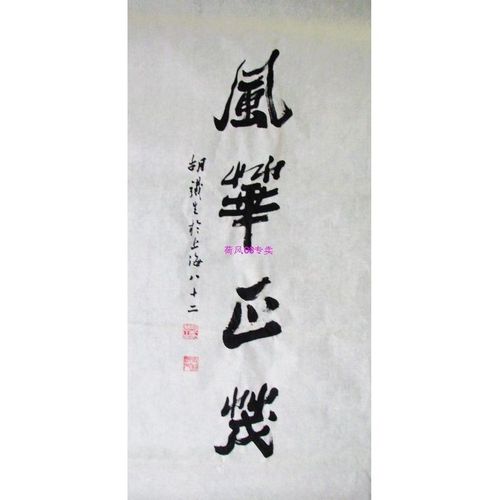 風華正茂
胡鐵生於上海八十二
荷风68专卖